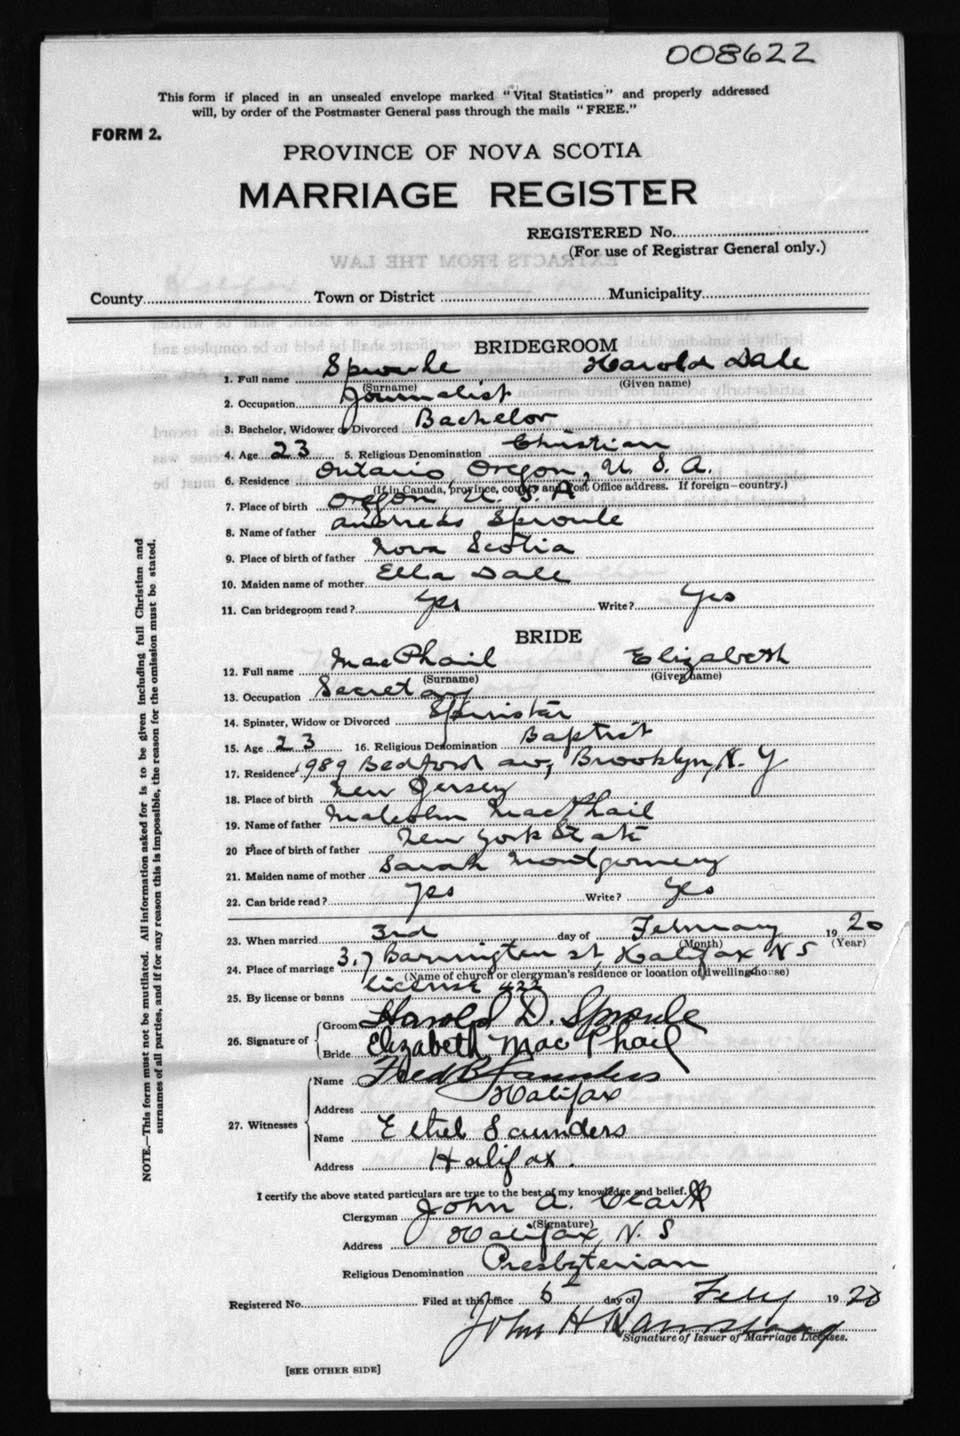 008622
This form if placed in an unsealed envelope marked "Vital Statistics" and properly addressed
will, by order of the Postmaster General pass through the mails "FREE."
FORM 2.
PROVINCE OF NOVA SCOTIA
MARRIAGE REGISTER
REGISTERED No.
(For use of Registrar General only.)
EXTRACTS FROM THE LAW
County Town or District Municipality
BRIDEGROOM
1. Full name Sproule Harold Dale
(Surname) (Given name)
2. Occupation Journalist
3. Bachelor, Widower or Divorced Bachelor
4. Age 23 5. Religious Denomination Christian
6. Residence Ontario, Oregon, U. S. A.
(If in Canada, province, county and Post Office address. If foreign—country.)
7. Place of birth Oregon, U. S. A
8. Name of father Andreas Sproule
9. Place of birth of father Nova Scotia
10. Maiden name of mother Ella Dale
11. Can bridegroom read? Yes Write? Yes
BRIDE
12. Full name MacPhail Elizabeth
(Surname) (Given name)
13. Occupation Secretary
14. Spinster, Widow or Divorced Spinster
15. Age 23 16. Religious Denomination Baptist
17. Residence 1989 Bedford av, Brooklyn, N. Y
18. Place of birth New Jersey
19. Name of father Malcolm MacPhail
20 Place of birth of father New York State
21. Maiden name of mother Sarah Montgomery
22. Can bride read? Yes Write? Yes
23. When married 3rd day of February 1920
(Month) (Year)
24. Place of marriage Barrington st, Halifax N S
(Name of church or clergyman's residence or location of dwelling house)
25. By license or banns license 422
26. Signature of Groom Harold D. Sproule
Bride Elizabeth MacPhail
27. Witnesses Name Fred B Saunders
Address Halifax
Name Ethel Saunders
Address Halifax.
I certify the above stated particulars are true to the best of my knowledge and belief.
Clergyman John A. Clark
(Signature)
Address Halifax, N. S
Religious Denomination Presbyterian
Registered No. Filed at this office 6 day of Feby 1920
John H
Signature of Issuer of Marriage Licenses.
[SEE OTHER SIDE]
NOTE.—This form must not be mutilated. All information asked for is to be given including full Christian and
surnames of all parties, and if for any reason this is impossible, the reason for the omission must be stated.